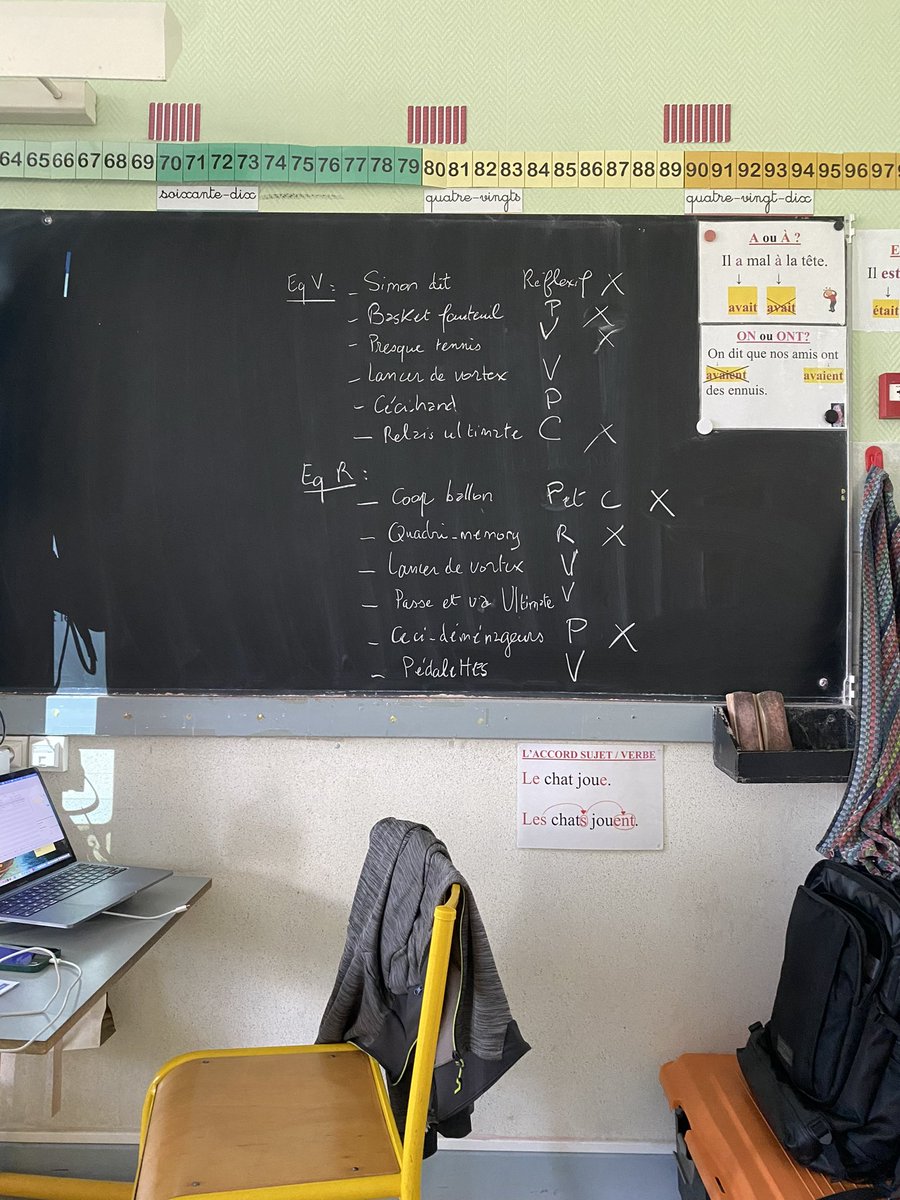 64 65 66 67 68 69 70 71 72 73 74 75 76 77 78 79 80 81 82 83 84 85 86 87 88 89 90 91 92 93 94 95 96 97
soixante-dix quatre-vingts quatre-vingt-dix
Eq V : - Simon dit Réflexif X
- Basket fauteuil P X
- Presque tennis V X
- Lancer de vortex V
- Cécihand P
- Relais ultimate C X
Eq R :
- Coop ballon P et C X
- Quadri-memory R X
- Lancer de vortex V
- Passe et va Ultimate V
- Ceci-déménageurs P X
- Pédalettes V
A ou À ?
Il a mal à la tête.
avait avait
ON ou ONT?
On dit que nos amis ont
avaient avaient
des ennuis.
Il est
était
L'ACCORD SUJET / VERBE
Le chat joue.
Les chats jouent.